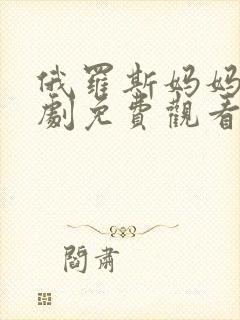 俄羅斯妈妈
劇免費觀看
閻肅